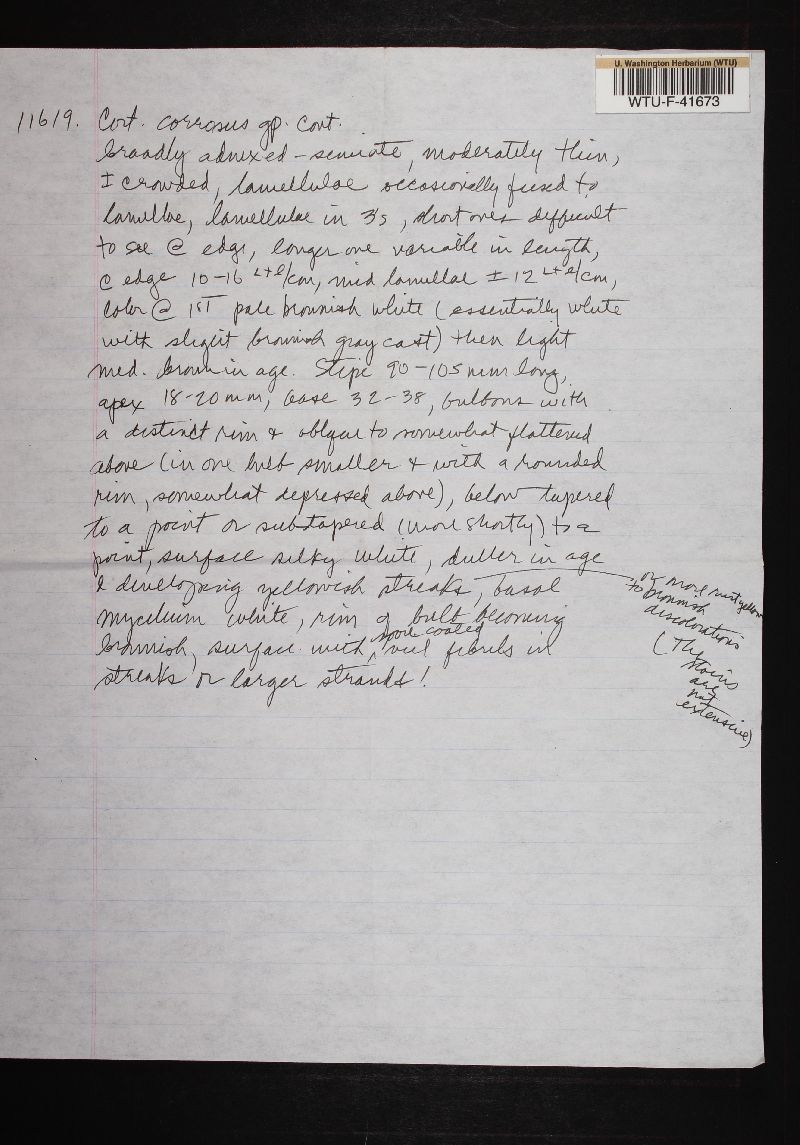 U. Washington Herbarium (WTU)
WTU-F-41673
11619. Cort. corrosus gp. cont.
broadly adnexed - seceding, moderately thin,
± crowded, lamellulae occasionally fused to
lamellae, lamellulae in 3's, short ones difficult
to see @ edge, longer one variable in length,
@ edge 10-16 L+l/cm, mid lamellae ± 12 L+l/cm,
color @ 1ST pale brownish white (essentially white
with slight brownish gray cast) then light
med. brown in age. Stipe 90-105 mm long,
apex 18-20 mm, base 32-38, bulbous with
a distinct rim & oblique to somewhat flattened
above (in one bulb smaller & with a rounded
rim, somewhat depressed above), below tapered
to a point or subtapered (more shortly) to a
point, surface silky white, duller in age
& developing yellowish streaks, basal
or more rust yellow
to brownish
discolorations
(The
stains
are
not
extensive)
mycelium white, rim of bulb becoming
brownish, surface with spore coated veil fibrils in
streaks or larger strands!